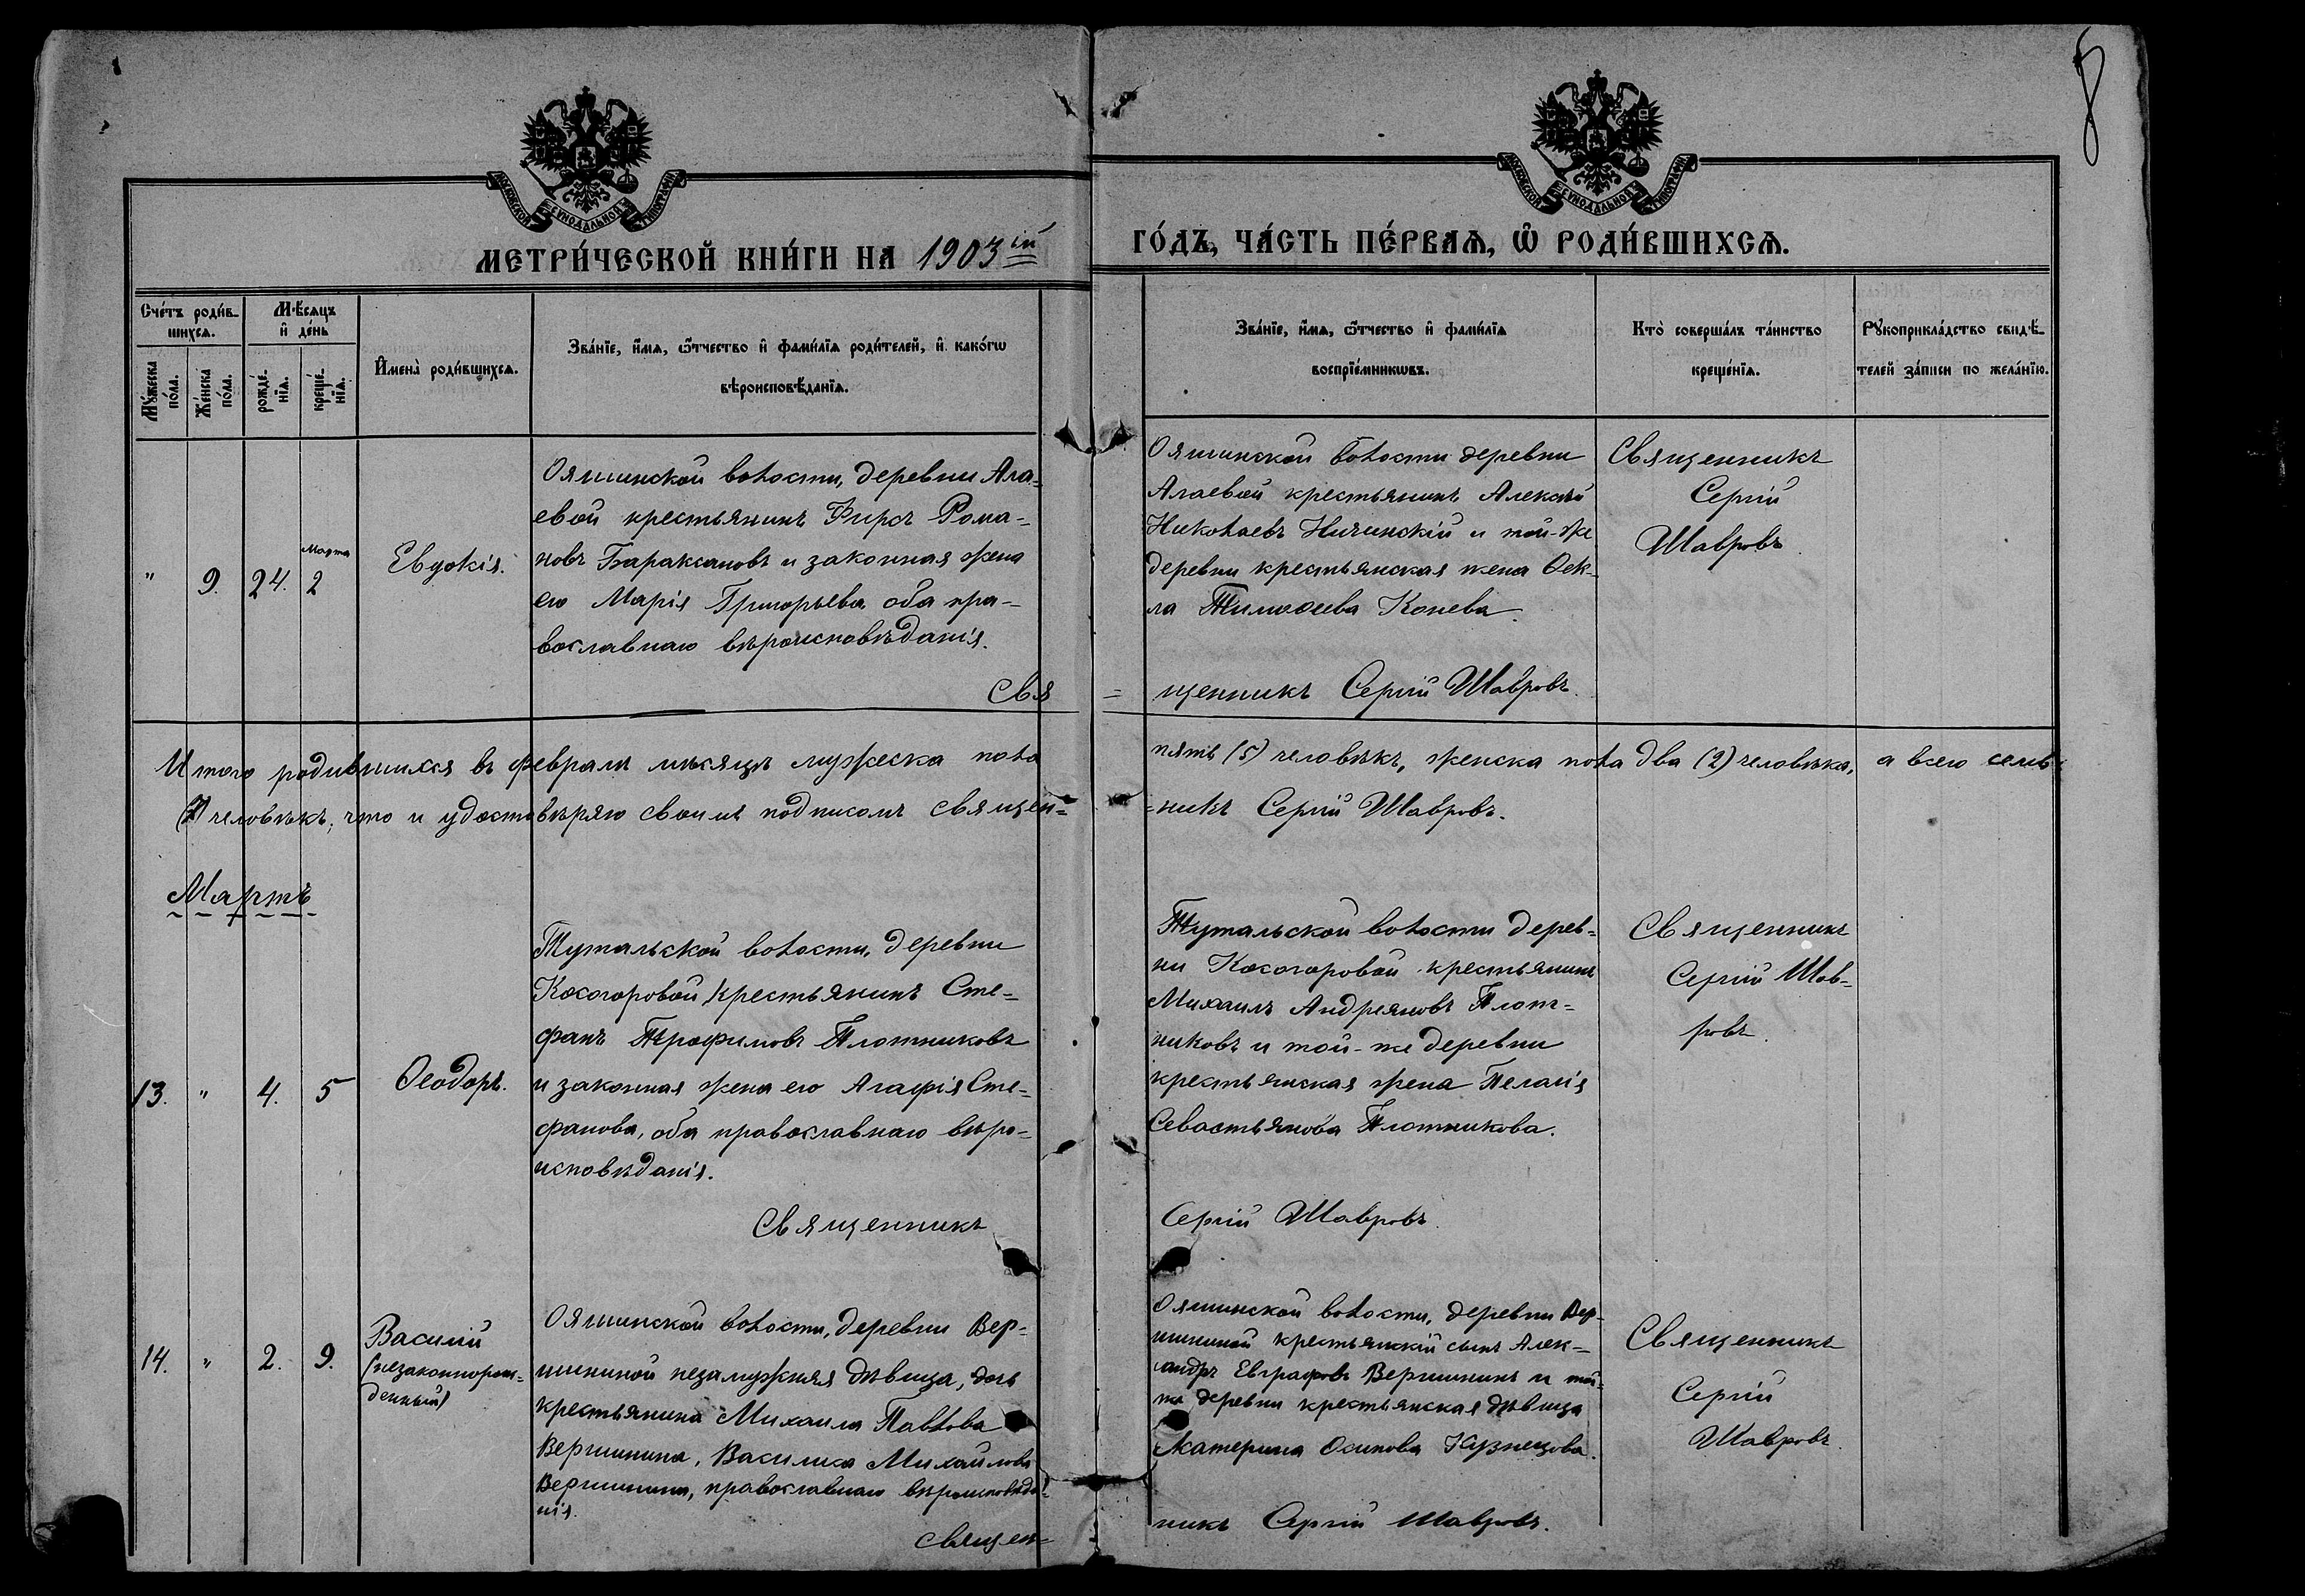 8
МОСКОВСКОЙ СѴНОДАЛЬНОЙ ТИПОГРАФІИ
МОСКОВСКОЙ СѴНОДАЛЬНОЙ ТИПОГРАФІИ
МЕТРИ́ЧЕСКОЙ КНИ́ГИ НА 1903ій
ГО́ДЪ, ЧА́СТЬ ПЕ́РВАЯ, Ѽ РОДИ́ВШИХСЯ.
Сче́тъ роди́в-
шихся.
Му́жеска по́ла.
Же́нска по́ла.
Мѣ́сяцъ
и҆ де́нь
рожде́-
нїя.
креще́-
нїя.
И҆мена̀ роди́вшихся.
Зва́нїе, и҆́мя, ѻ҆́тчество и҆ фами́лїя роди́телей, и҆ како́гѡ
вѣроисповѣ́данїя.
Зва́нїе, и҆́мя, ѻ҆́тчество и҆ фами́лїя
воспрїе́мникѡвъ.
Кто̀ соверша́лъ та́инство
креще́нїя.
Рꙋкоприкла́дство свидѣ́-
телей за́писи по жела́нїю.
" 9. 24. Марта 2
Евдокія.
Ояшинской волости, деревни Ала-
евой крестьянинъ Фирсъ Рома-
новъ Бараксановъ и законная жена
его Марія Григорьева оба пра-
вославнаго вѣроисповѣданія.
Свя
Ояшинской волости деревни
Алаевой крестьянинъ Алексѣй
Николаевъ Ничинскій и той-же
деревни крестьянская жена Ѳек-
ла Тимоѳеева Конева.
=щенникъ Сергій Шавровъ.
Священникъ
Сергій
Шавровъ.
Итого родившихся въ февралѣ мѣсяцѣ мужеска пола пять (5) человѣкъ, женска пола два (2) человѣка, а всего семь
(7) человѣкъ; что и удостовѣряю своимъ подписомъ священ=
=никъ Сергій Шавровъ.
Мартъ
13. " 4. 5
Ѳеодоръ.
Тутальской волости, деревни
Косогоровой крестьянинъ Сте=
фанъ Трофимовъ Плотниковъ
и законная жена его Агафія Сте=
фанова, оба православнаго вѣро=
исповѣданія.
Священникъ
Тутальской волости дерев=
ни Косогоровой крестьянинъ
Михаилъ Андреяновъ Плот=
никовъ и той-же деревни
крестьянская жена Пелагія
Севастьянова Плотникова.
Сергій Шавровъ.
Священникъ
Сергій Шав=
ровъ.
14. " 2. 9.
Василій
(незаконнорож=
денный)
Ояшинской волости, деревни Вер=
шининой незамужняя дѣвица, дочь
крестьянина Михаила Павлова
Вершинина, Василиса Михайлова
Вершинина, православнаго вѣроисповѣда=
нія.
Священ=
Ояшинской волости, деревни Вер-
шининой крестьянскій сынъ Алек=
сандръ Евграфовъ Вершининъ и той=
же деревни крестьянская дѣвица
Екатерина Осипова Кузнецова.
никъ Сергій Шавровъ.
Священникъ
Сергій
Шавровъ.